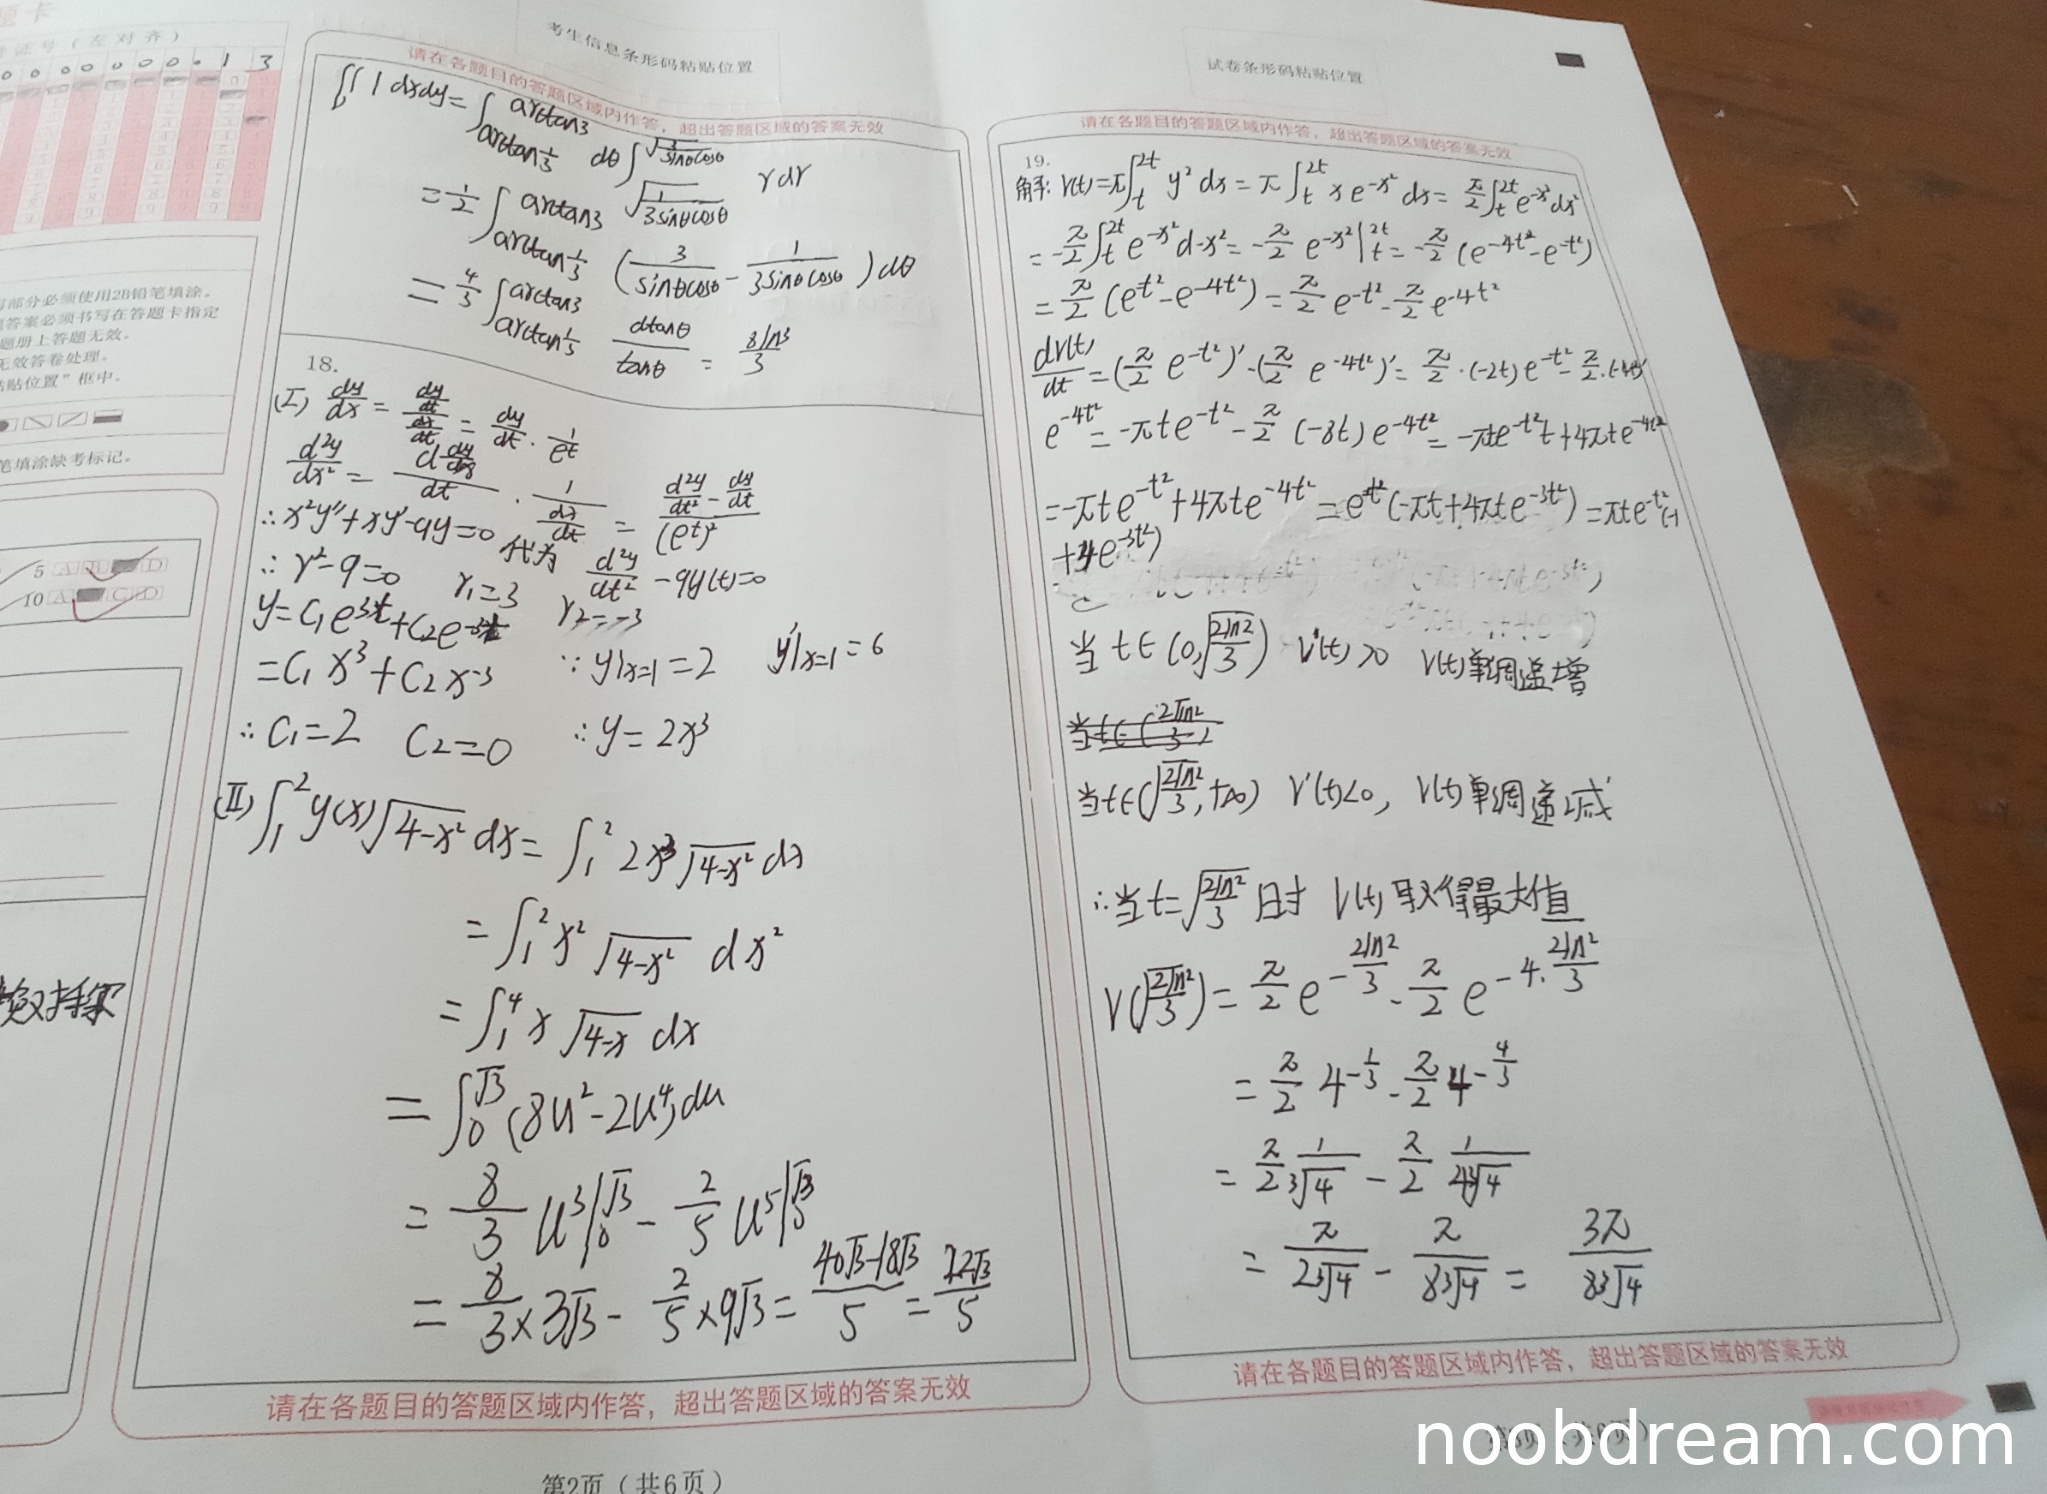 题卡
证号（左对齐）
考生信息条形码粘贴位置
试卷条形码粘贴位置
请在各题目的答题区域内作答，超出答题区域的答案无效
∬ 1 dxdy = ∫_{arctan 1/3}^{arctan3} dθ ∫_{√(1/(3sinθcosθ))}^{√(3/(sinθcosθ))} r dr
= 1/2 ∫_{arctan 1/3}^{arctan3} (3/(sinθcosθ) - 1/(3sinθcosθ)) dθ
= 4/3 ∫_{arctan 1/3}^{arctan3} dtanθ/tanθ = 8ln3/3
18.
(I) dy/dx = (dy/dt)/(dx/dt) = dy/dt · 1/e^t
d²y/dx² = (d dy/dx)/dt · 1/(dx/dt) = (d²y/dt² - dy/dt)/(e^t)²
∴ x²y''+xy'-9y=0 代为 d²y/dt² - 9y(t)=0
∴ r²-9=0 r₁=3 r₂=-3
y=C₁e^{3t}+C₂e^{-3t}
=C₁x³+C₂x^{-3} ∵y|x=1=2 y'|x=1=6
∴C₁=2 C₂=0 ∴y=2x³
(II) ∫₁² y(x)√(4-x²) dx = ∫₁² 2x³√(4-x²) dx
= ∫₁² x²√(4-x²) dx²
= ∫₁⁴ x√(4-x) dx
= ∫₀^{√3} (8u²-2u⁴)du
= 8/3 u³|₀^{√3} - 2/5 u⁵|₀^{√3}
= 8/3×3√3 - 2/5×9√3 = (40√3-18√3)/5 = 22√3/5
请在各题目的答题区域内作答，超出答题区域的答案无效
第2页（共6页）
请在各题目的答题区域内作答，超出答题区域的答案无效
19.
解: V(t)=π∫_t^{2t} y²dx = π∫_t^{2t} xe^{-x²}dx = π/2∫_t^{2t} e^{-x²}dx²
= -π/2∫_t^{2t} e^{-x²}d-x² = -π/2 e^{-x²}|_t^{2t} = -π/2 (e^{-4t²}-e^{-t²})
= π/2 (e^{-t²}-e^{-4t²}) = π/2 e^{-t²} - π/2 e^{-4t²}
dV(t)/dt = (π/2 e^{-t²})' - (π/2 e^{-4t²})' = π/2·(-2t)e^{-t²} - π/2·(-4t²)'
e^{-4t²} = -πte^{-t²} - π/2 (-8t)e^{-4t²} = -πte^{-t²}t+4πte^{-4t²}
= -πte^{-t²}+4πte^{-4t²} = e^{-t²}(-πt+4πte^{-3t²}) = πte^{-t²}(-1
+4e^{-3t²})
当 t∈(0,√(2ln2/3)) V'(t)>0 V(t)单调递增
当t∈(√(2ln2/3),+∞) V'(t)<0, V(t)单调递减
∴当t=√(2ln2/3)时 V(t)取得最大值
V(√(2ln2/3)) = π/2 e^{-2ln2/3} - π/2 e^{-4·2ln2/3}
= π/2 4^{-1/3} - π/2 4^{-4/3}
= π/2 1/∛4 - π/2 1/(4∛4)
= π/(2∛4) - π/(8∛4) = 3π/(8∛4)
请在各题目的答题区域内作答，超出答题区域的答案无效
部分必须使用2B铅笔填涂。
答案必须书写在答题卡指定
题册上答题无效。
无效答卷处理。
粘贴位置”框中。
笔填涂缺考标记。
5
10
noobdream.com